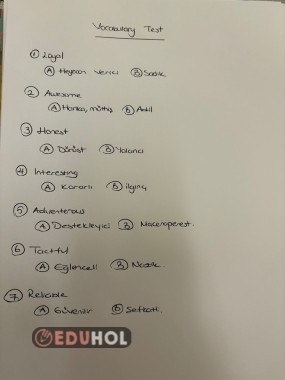 Vocabulary Test
① Loyal
Ⓐ Heyecan verici Ⓑ Sadık
② Awesome
Ⓐ Harika, müthiş Ⓑ Akıl
③ Honest
Ⓐ Dürüst Ⓑ Yalancı
④ Interesting
Ⓐ Kararlı Ⓑ ilginç
⑤
Ⓐ Destekleyici Ⓑ Maceraperest
⑥ Tactful
Ⓐ Eğlenceli Ⓑ Nazik
⑦ Reliable
Ⓐ Güvenilir Ⓑ Şefkatli
EDUHOL